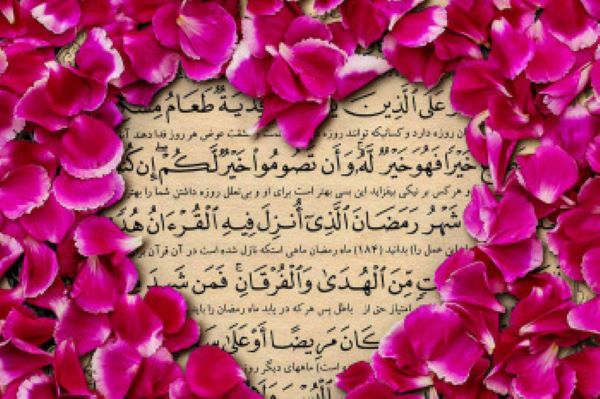 عَلَى ٱلَّذِينَ فِدْيَةٌ طَعَامُ
روزه دارد و کسانیکه توانند روزه و مشقت عوض هر روز فدا دهند
خَيْرًا فَهُوَ خَيْرٌ لَّهُۥ وَأَن تَصُومُوا۟ خَيْرٌ لَّكُمْ إِن
و هرکس بر نیکی بیفزاید این بسی بهتر است برای او و بی‌تعلل روزه داشتن شما را بهتر
شَهْرُ رَمَضَانَ ٱلَّذِىٓ أُنزِلَ فِيهِ ٱلْقُرْءَانُ
این عمل را) بدانید (۱۸۴) ماه رمضان ماهی استکه نازل شده است در آن قرآن
مِّنَ ٱلْهُدَىٰ وَٱلْفُرْقَانِ فَمَن شَهِدَ
امتیاز حق از باطل پس هر که در یابد ماه رمضان را باید
كَانَ مَرِيضًا أَوْ عَلَىٰ
است) ماههای دیگر روزه